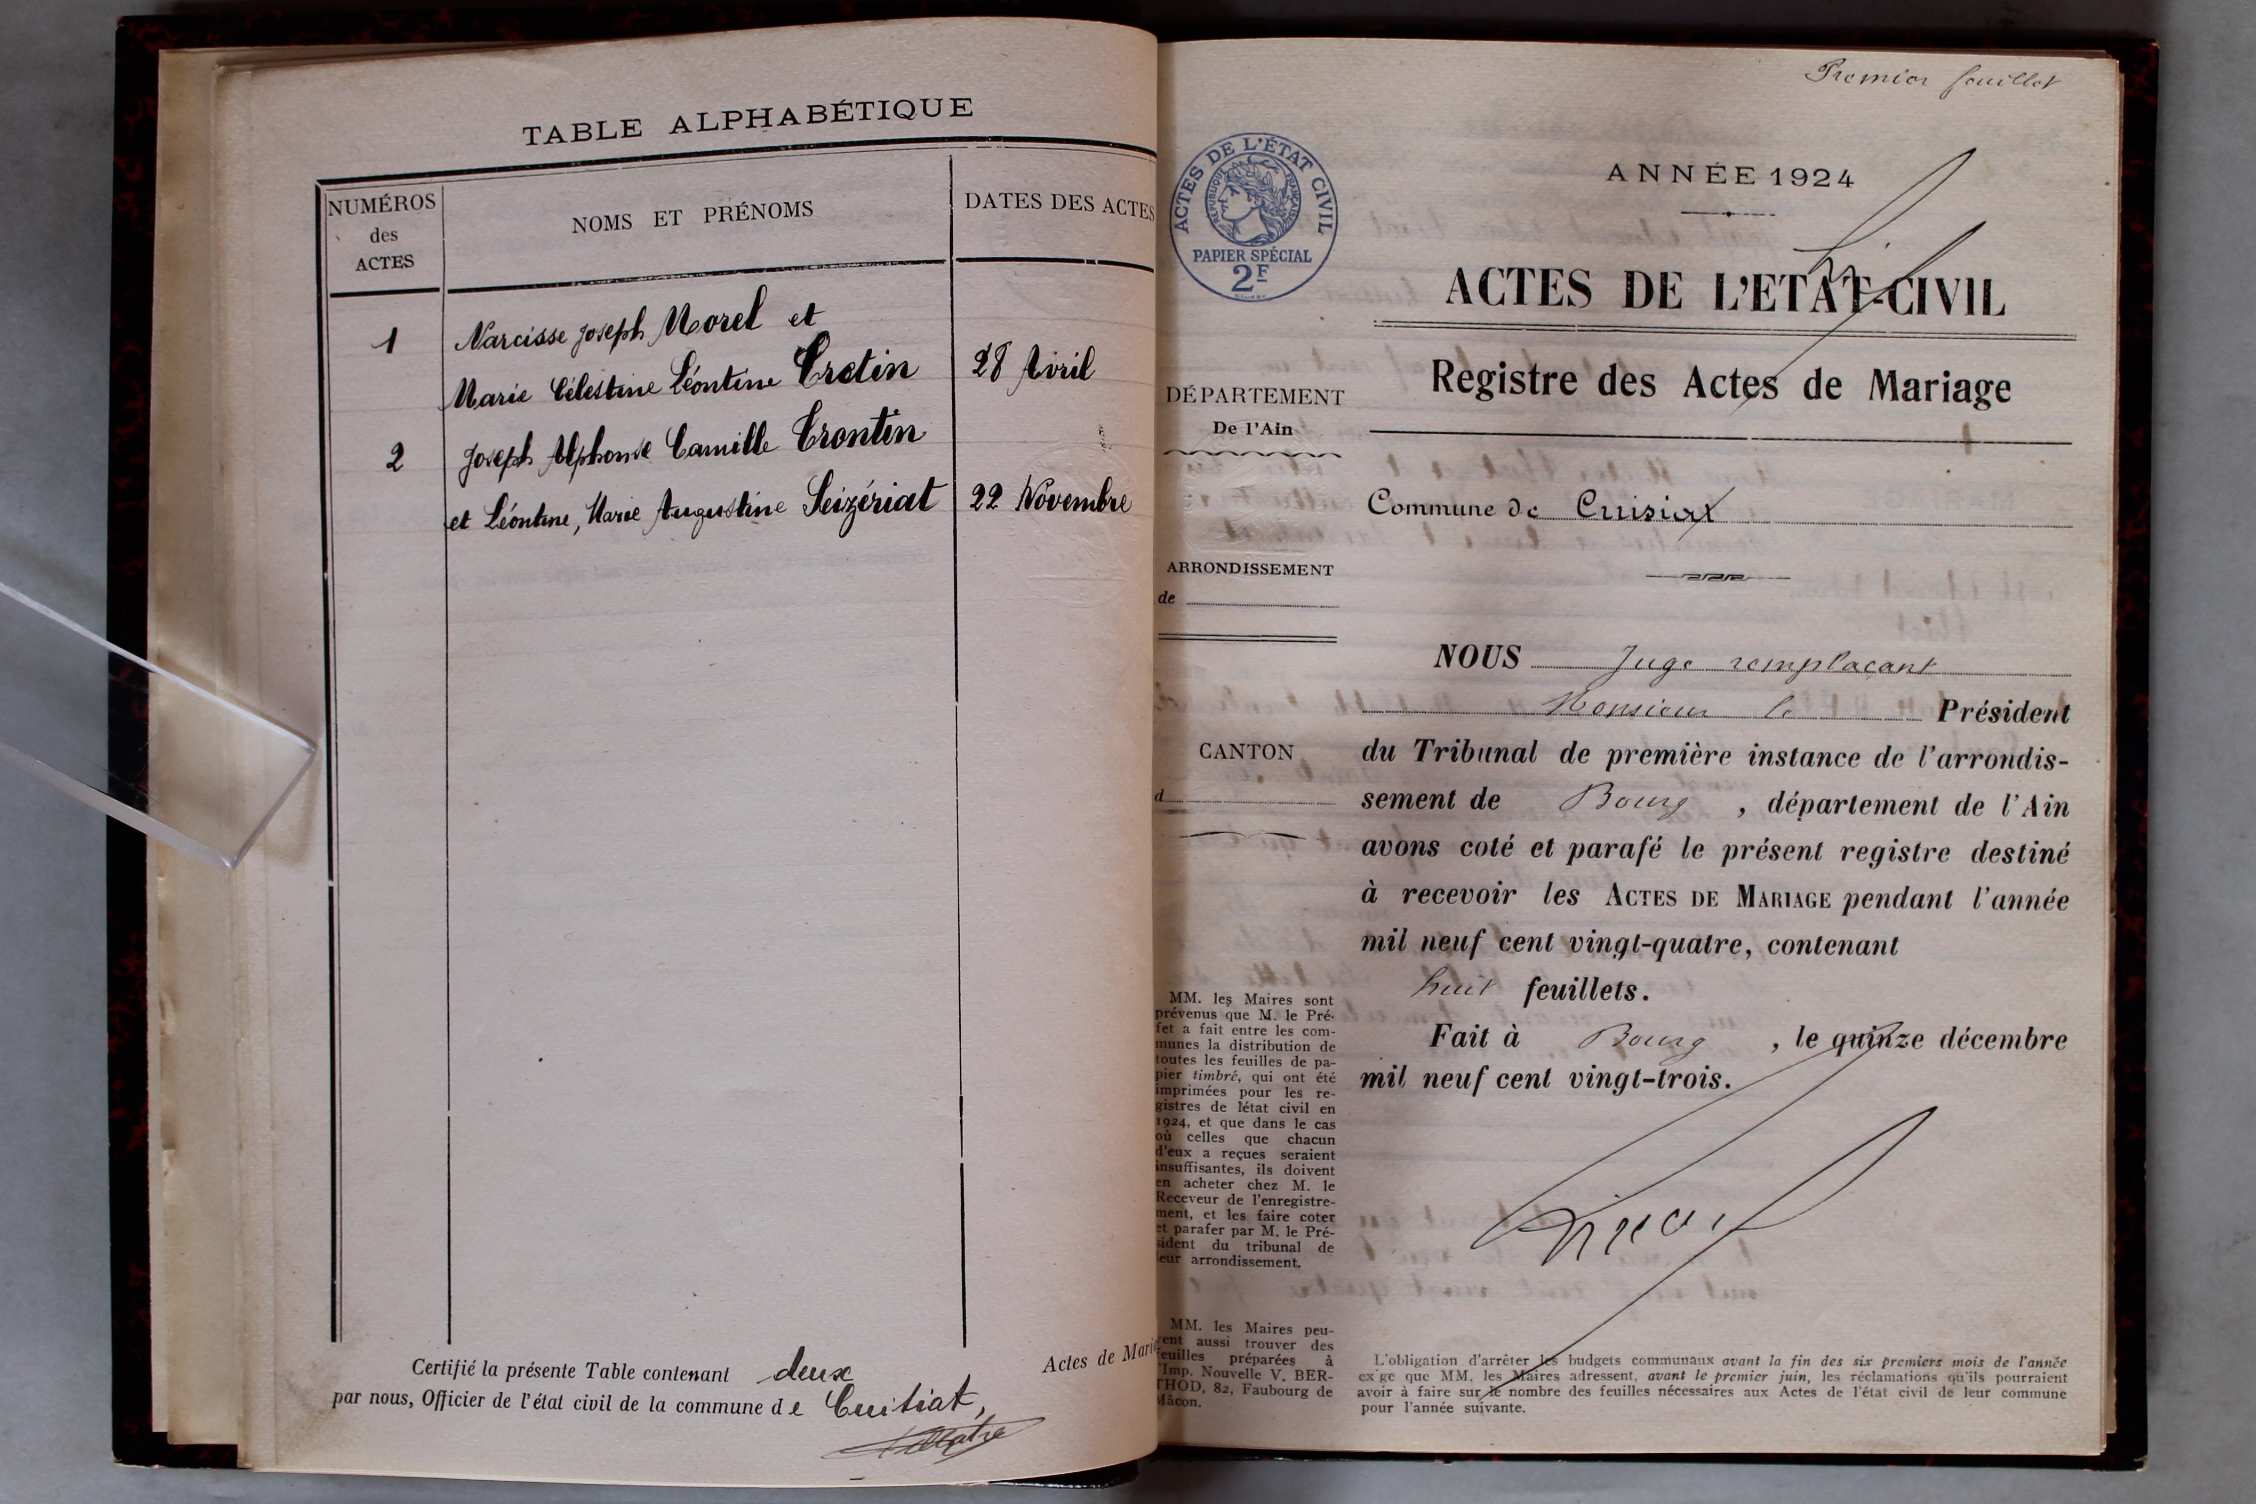 TABLE ALPHABÉTIQUE
NUMÉROS
des
ACTES
NOMS ET PRÉNOMS
DATES DES ACTES
1
Narcisse Joseph Morel et
Marie Célestine Léontine Cretin
28 Avril
2
Joseph Alphonse Camille Crontin
et Léontine, Marie Augustine Seizériat
22 Novembre
Certifié la présente Table contenant deux
par nous, Officier de l'état civil de la commune de Cuisiat,
Actes de Mari
Premier feuillet
ACTES DE L'ÉTAT CIVIL
RÉPUBLIQUE FRANÇAISE
PAPIER SPÉCIAL
2F
ANNÉE 1924
ACTES DE L'ETAT-CIVIL
Registre des Actes de Mariage
DÉPARTEMENT
De l'Ain
Commune de Cuisiat
ARRONDISSEMENT
de
CANTON
d
NOUS Juge remplaçant
Monsieur le Président
du Tribunal de première instance de l'arrondis-
sement de Bourg, département de l'Ain
avons coté et parafé le présent registre destiné
à recevoir les ACTES DE MARIAGE pendant l'année
mil neuf cent vingt-quatre, contenant
huit feuillets.
Fait à Bourg, le quinze décembre
mil neuf cent vingt-trois.
MM. les Maires sont
prévenus que M. le Pré-
fet a fait entre les com-
munes la distribution de
toutes les feuilles de pa-
pier timbré, qui ont été
imprimées pour les re-
gistres de létat civil en
1924, et que dans le cas
où celles que chacun
d'eux a reçues seraient
insuffisantes, ils doivent
en acheter chez M. le
Receveur de l'enregistre-
ment, et les faire coter
et parafer par M. le Pré-
sident du tribunal de
leur arrondissement.
MM. les Maires peu-
vent aussi trouver des
feuilles préparées à
l'Imp. Nouvelle V. BER-
THOD, 82, Faubourg de
Mâcon.
L'obligation d'arrêter les budgets communaux avant la fin des six premiers mois de l'année
ex'ge que MM. les Maires adressent, avant le premier juin, les réclamations qu'ils pourraient
avoir à faire sur le nombre des feuilles nécessaires aux Actes de l'état civil de leur commune
pour l'année suivante.